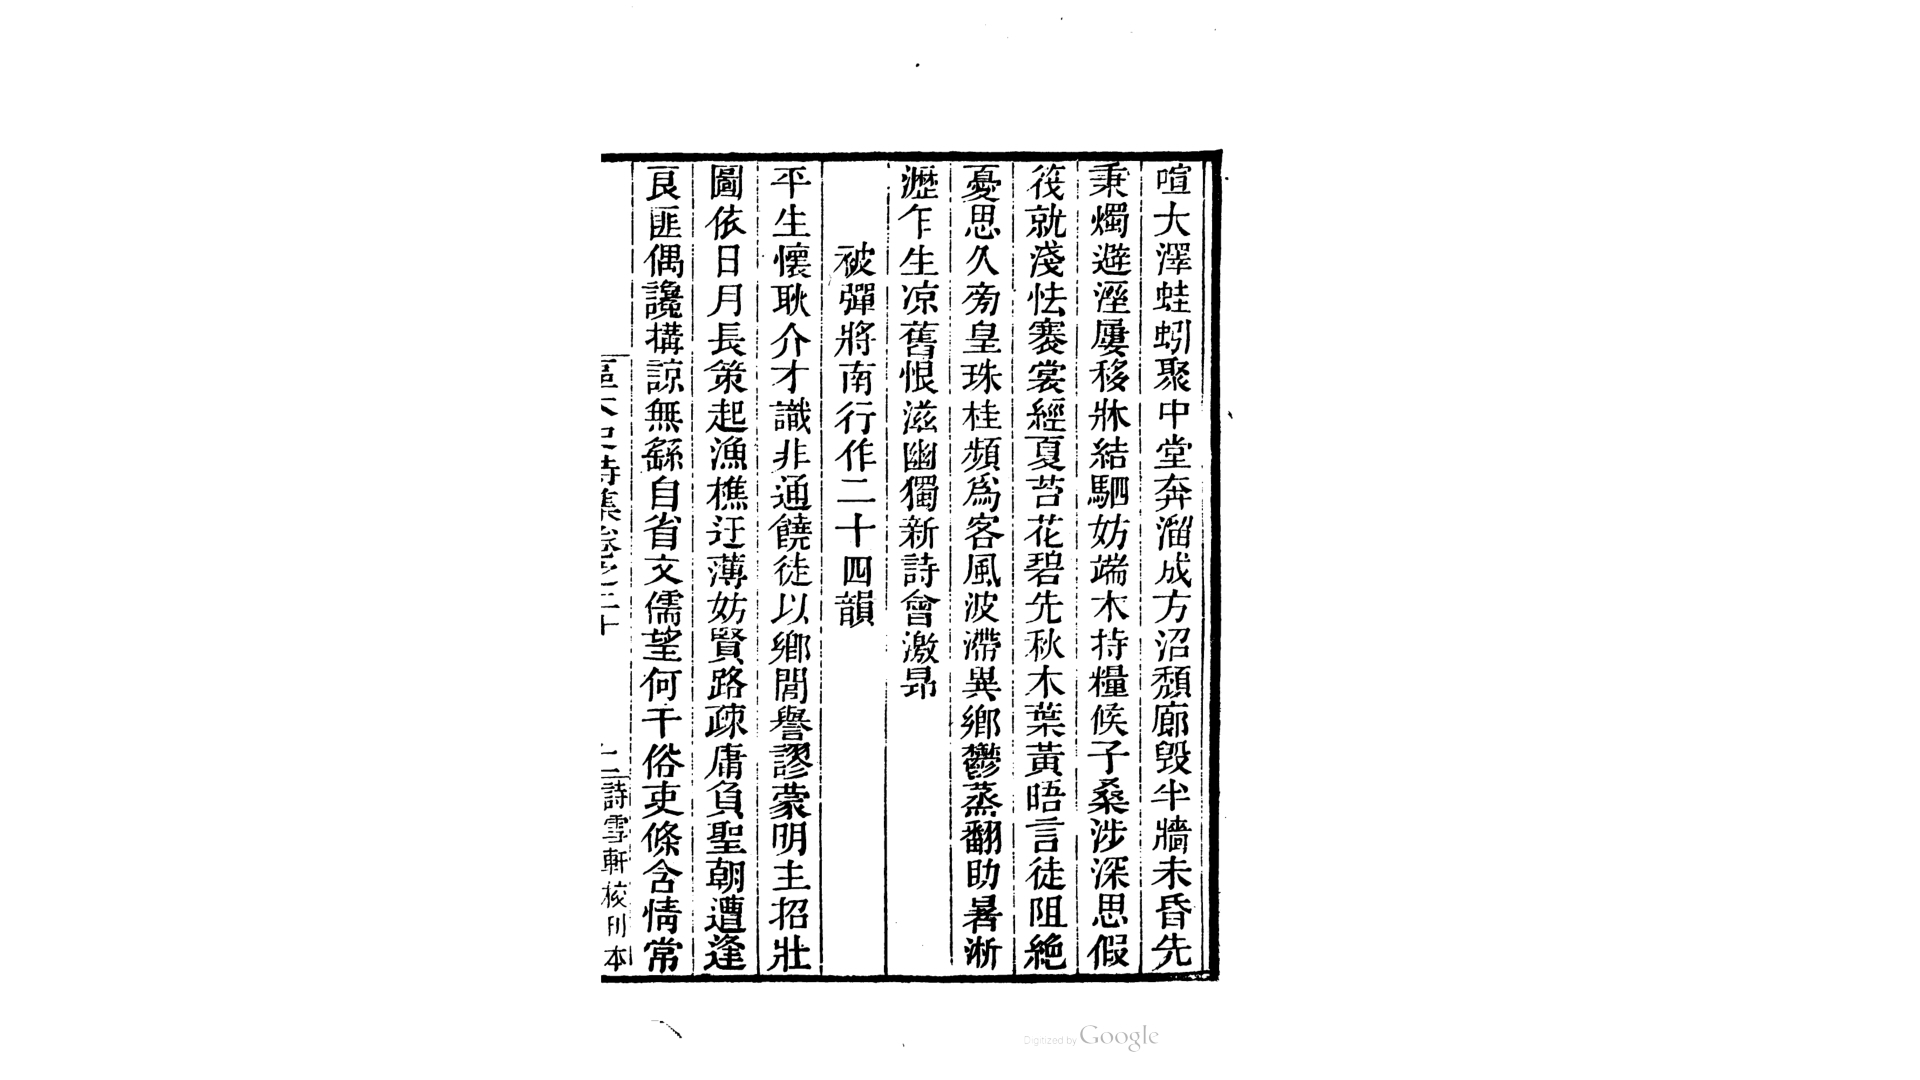 喧大澤蛙蚓聚中堂奔溜成方沼頹廊毁半牆未昏先
秉燭避溼屢移牀結駟妨端木持糧候子桑涉深思假
筏就淺怯褰裳經夏苔花碧先秋木葉黃晤言徒阻絶
憂思久旁皇珠桂頻爲客風波滯異鄉鬱蒸翻助暑淅
瀝乍生凉舊恨滋幽獨新詩會激昂
被彈將南行作二十四韻
平生懷耿介才識非通饒徒以鄉閭譽謬蒙明主招壯
圖依日月長策起漁樵迂薄妨賢路疎庸負聖朝遭逢
良匪偶讒構諒無繇自省文儒望何干俗吏條含情常
區太史詩集卷之二十
詩雪軒校刊本
Digitized by Google